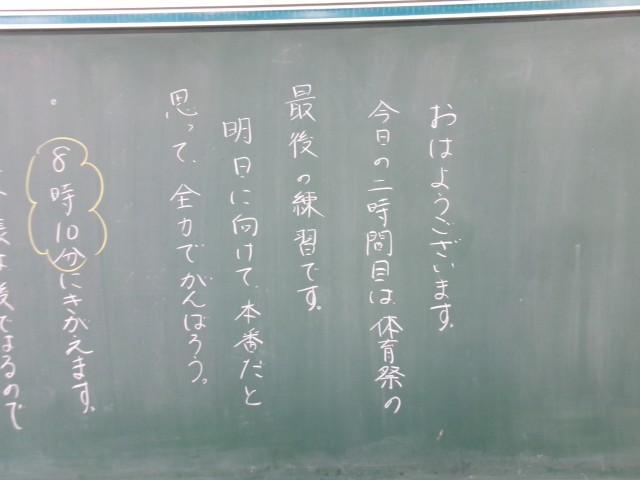 おはようございます。
今日の二時間目は、体育祭の
最後の練習です。
明日に向けて、本番だと
思って、全力でがんばろう。
8時10分にきがえます。
長は後でよるので